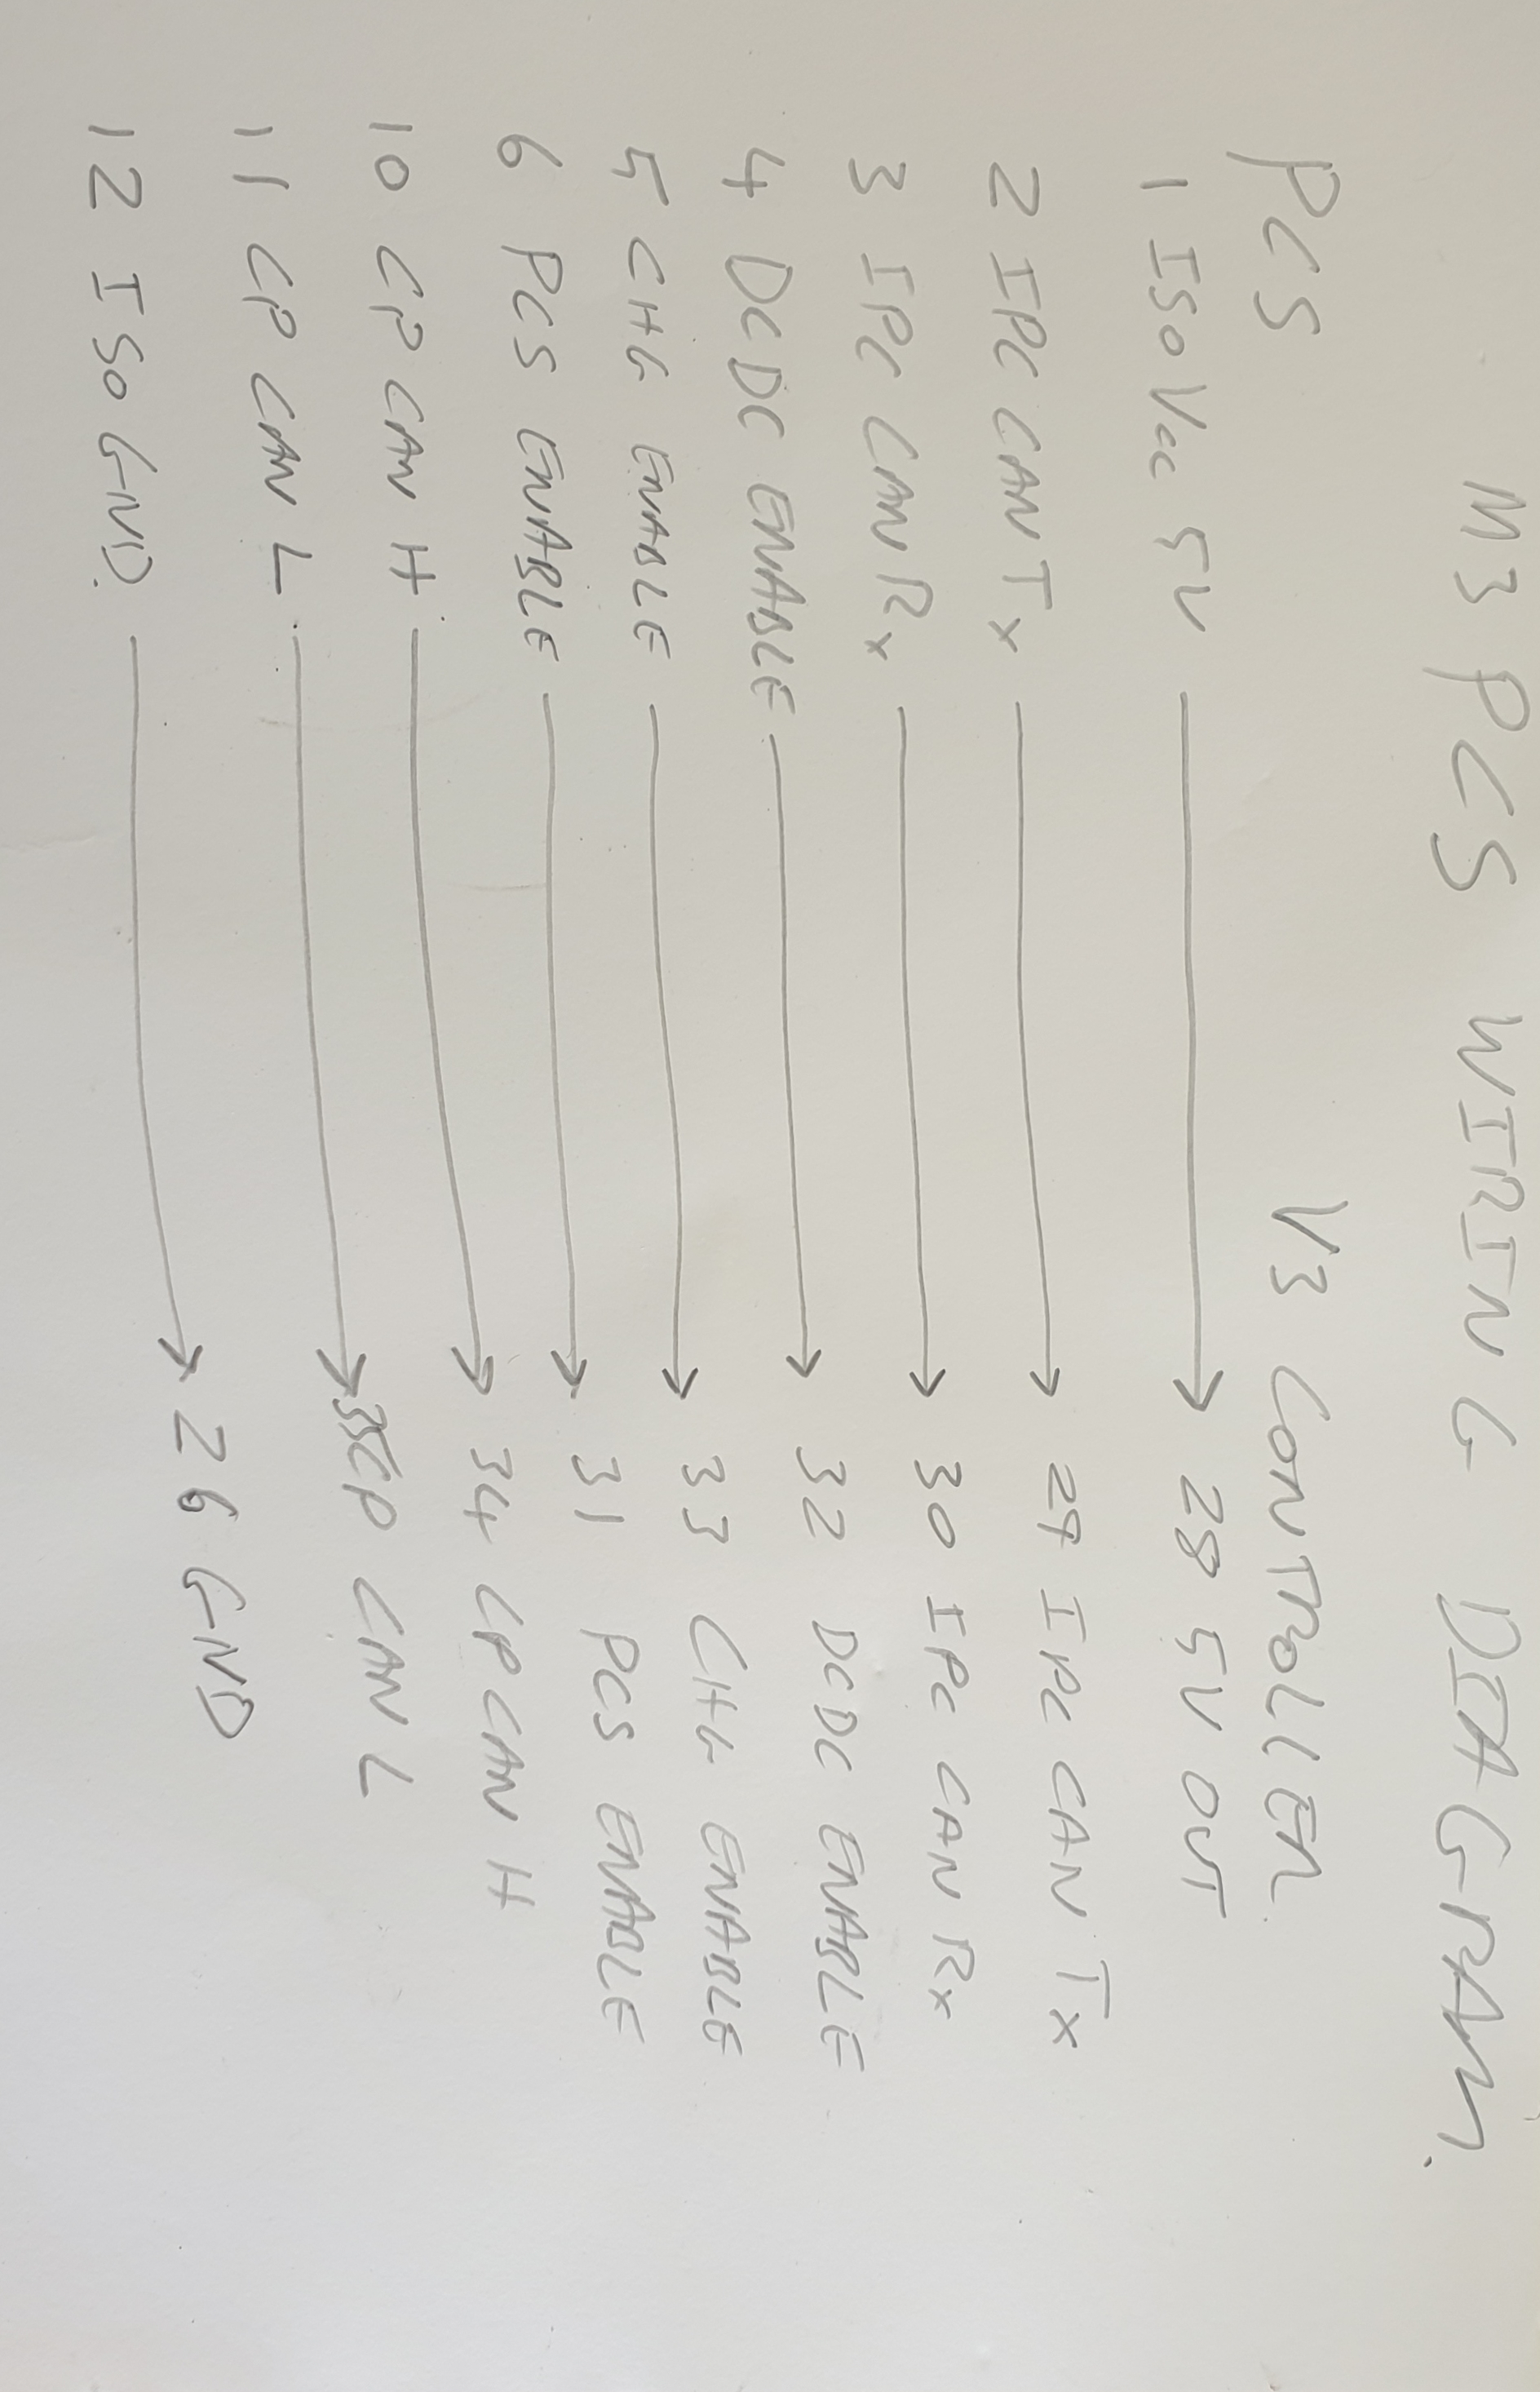 M3 PCS WIRING DIAGRAM.
PCS V3 CONTROLLER.
1 ISO Vcc 5V → 28 5V OUT
2 IPC CAN Tx → 29 IPC CAN Tx
3 IPC CAN Rx → 30 IPC CAN Rx
4 DCDC ENABLE → 32 DCDC ENABLE
5 CHG ENABLE → 33 CHG ENABLE
6 PCS ENABLE → 31 PCS ENABLE
10 CP CAN H → 34 CP CAN H
11 CP CAN L → 35 CP CAN L
12 ISO GND. → 26 GND